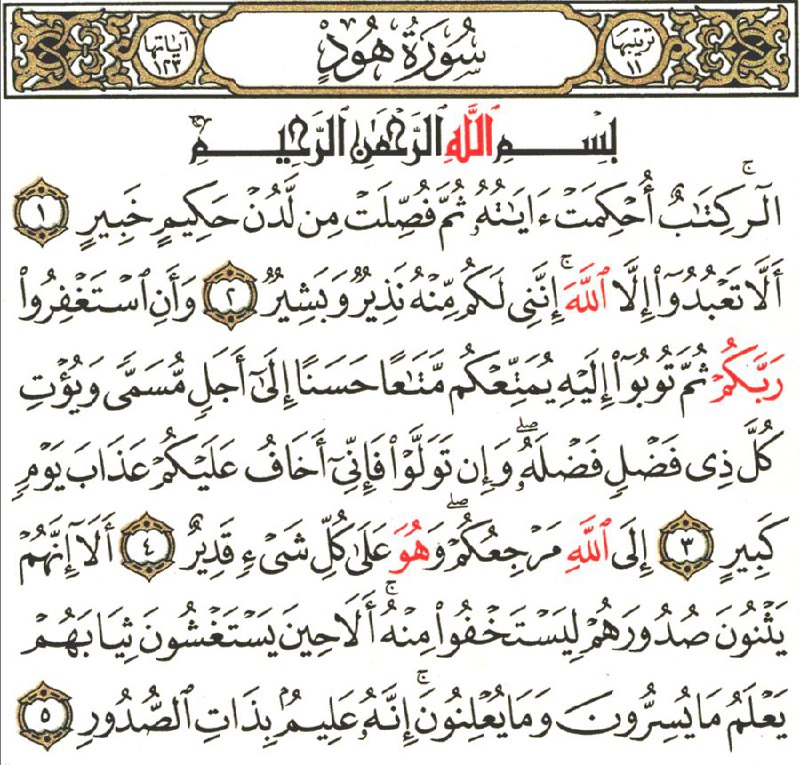 ترتيبها ١١ سُورَةُ هُودٍ آياتها ١٢٣
بِسْمِ ٱللَّهِ ٱلرَّحْمَٰنِ ٱلرَّحِيمِ
الٓرۚ كِتَٰبٌ أُحْكِمَتْ ءَايَٰتُهُۥ ثُمَّ فُصِّلَتْ مِن لَّدُنْ حَكِيمٍ خَبِيرٍ ١
أَلَّا تَعْبُدُوٓا۟ إِلَّا ٱللَّهَۚ إِنَّنِى لَكُم مِّنْهُ نَذِيرٌ وَبَشِيرٌ ٢ وَأَنِ ٱسْتَغْفِرُوا۟
رَبَّكُمْ ثُمَّ تُوبُوٓا۟ إِلَيْهِ يُمَتِّعْكُم مَّتَٰعًا حَسَنًا إِلَىٰٓ أَجَلٍ مُّسَمًّى وَيُؤْتِ
كُلَّ ذِى فَضْلٍ فَضْلَهُۥۖ وَإِن تَوَلَّوْا۟ فَإِنِّىٓ أَخَافُ عَلَيْكُمْ عَذَابَ يَوْمٍ
كَبِيرٍ ٣ إِلَى ٱللَّهِ مَرْجِعُكُمْۖ وَهُوَ عَلَىٰ كُلِّ شَىْءٍ قَدِيرٌ ٤ أَلَآ إِنَّهُمْ
يَثْنُونَ صُدُورَهُمْ لِيَسْتَخْفُوا۟ مِنْهُۚ أَلَا حِينَ يَسْتَغْشُونَ ثِيَابَهُمْ
يَعْلَمُ مَا يُسِرُّونَ وَمَا يُعْلِنُونَۚ إِنَّهُۥ عَلِيمٌۢ بِذَاتِ ٱلصُّدُورِ ٥